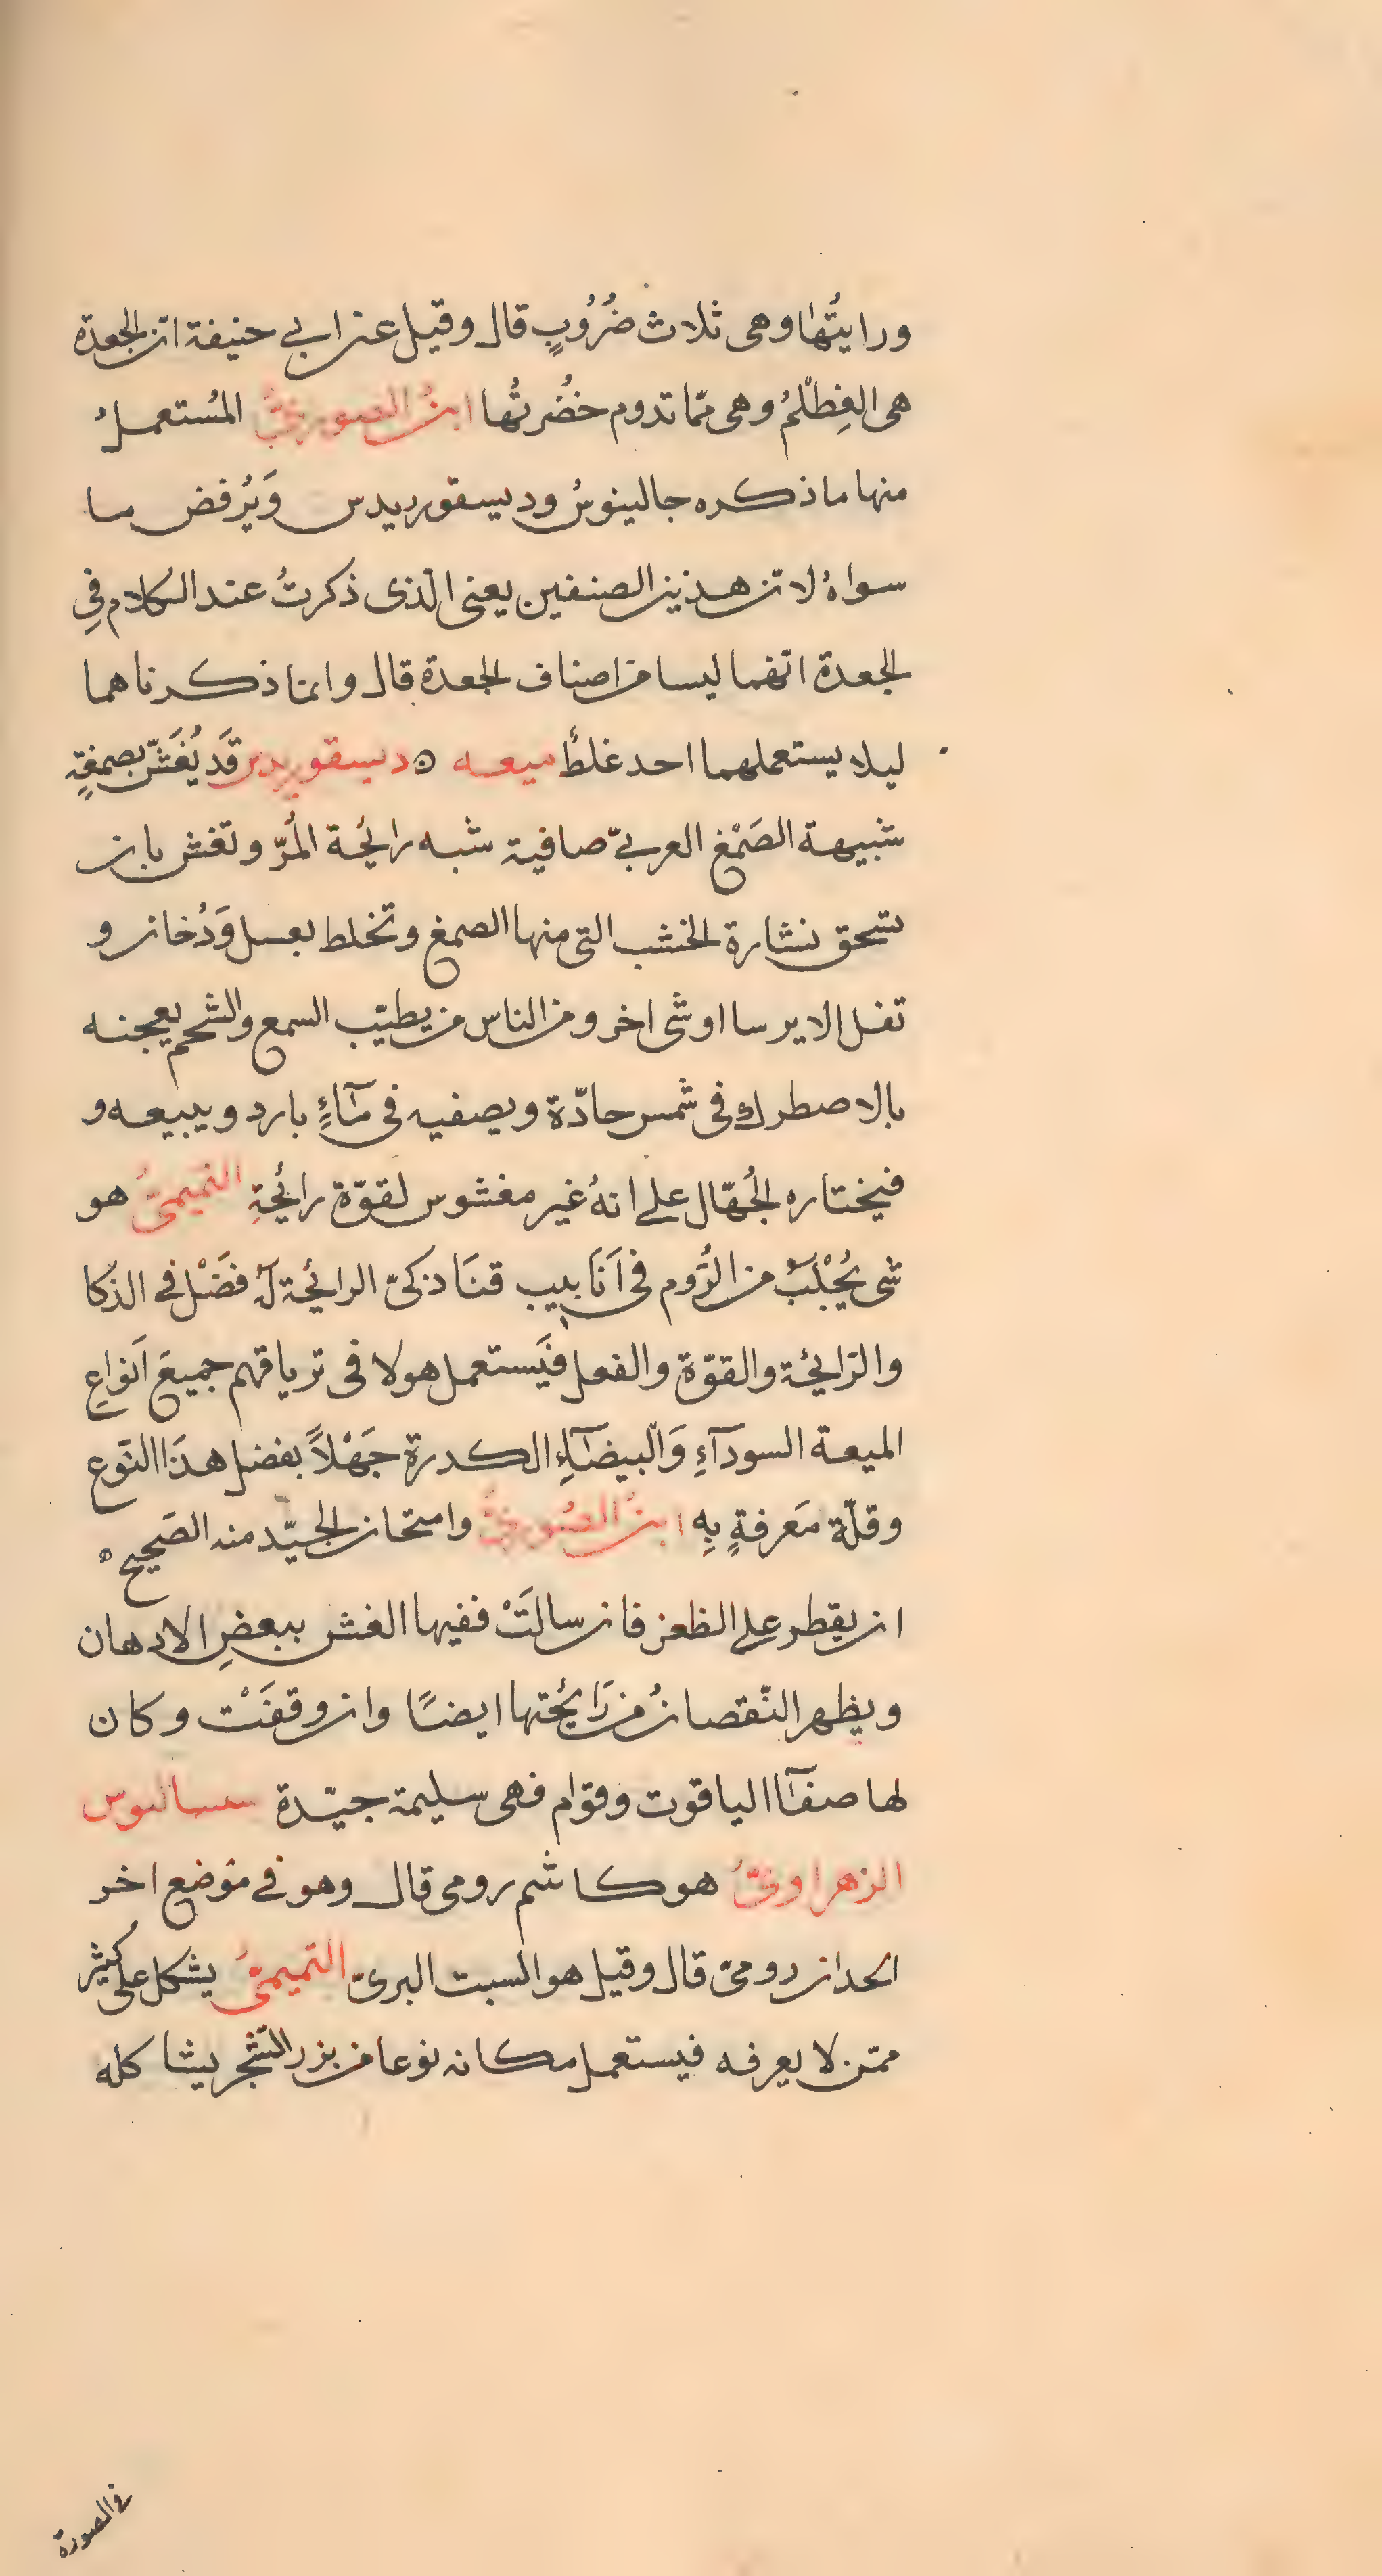 ورايتُها وهى ثلاث ضُرُوبٍ قال وقيل عن ابي حنيفة انّ الجعدة
هى الغِطْلمُ وهى ممّا تدوم خضُرتُها ابنُ الصورىّ المُستعملُ
منها ما ذكره جالينوسُ وديسقوريدس وَيُرفض ما
سواهُ لانّ هذين الصنفين يعنى الّذى ذكرتُ عند الكلام فِي
الجعدة انّهما ليسا من اصناف الجعدة قال وانما ذكرناهما
ليلا يستعملهما احد غلطًا ميعه ⊙ ديسقوريدس قَد يُغَشّ بصمغةٍ
شبيهة الصَمْغ العربىّ صافية شبه رائحة المُرّ وتغش بان
تسحق نشارة الخشب التى منها الصمغ وتخلط بعسل وَدُخان و
تفل الايرسا او شى اخر ومن الناس من يطيّب السمع والشحم يعجنه
بالاصطرك فى شمس حادّة ويصفيه فى مآءٍ بارد ويبيعه و
فيختاره الجُهّال على انهُ غير مغشوس لقوّة رائحةِ التميمىُّ هو
شى يُجْلَبُ من الرُّوم فى اَنَابيب قنَا ذكىّ الرائحةِ لهُ فضَْل في الذكا
والرّائحة والقوّة والفعل فيَستعمل هولا فى ترياقهم جميعَ اَنواعِ
الميعة السودآءِ وَالبيضآءِ الكدرة جَهْلاً بفضل هذا النَوع
وقلّة مَعرفةٍ بِه ابنُ الصُورىّ وامتحان الجيّد منه الصَحيح ه
ان يقطر على الظفر فان سالَتْ ففيها الغش ببعضِ الادهان
ويظهر النّقصانُ من رَايحُتها ايضًا وان وقفَتْ وكان
لها صفآا الياقوت وقوّام فهى سليمة جيّدة سساليوس
الزهراوىّ هو كاشم رومى قال وهو في مَوضع اخر
انجدان رومىّ قال وقيل هو السبت البرىّ التميمىُّ يشكل على كثير
ممّن لا يعرفه فيستعمل مكانه نوعا من بزر الشّجر يشاكله
في الصورة